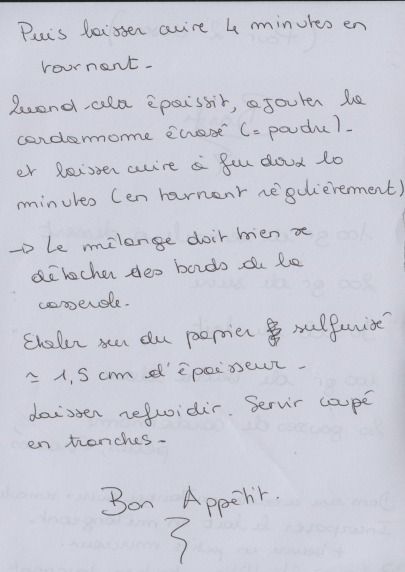 Puis laisser cuire 4 minutes en
tournant -
Quand cela épaissit, ajouter la
cardamome écrasé (= poudre) -
et laisser cuire à feu doux 10
minutes (en tournant régulièrement)
-> Le mélange doit bien se
détacher des bords de la
casserole.
Etaler sur du papier sulfurisé
≃ 1,5 cm d'épaisseur -
Laisser refroidir. Servir coupé
en tranches -
Bon Appétit.